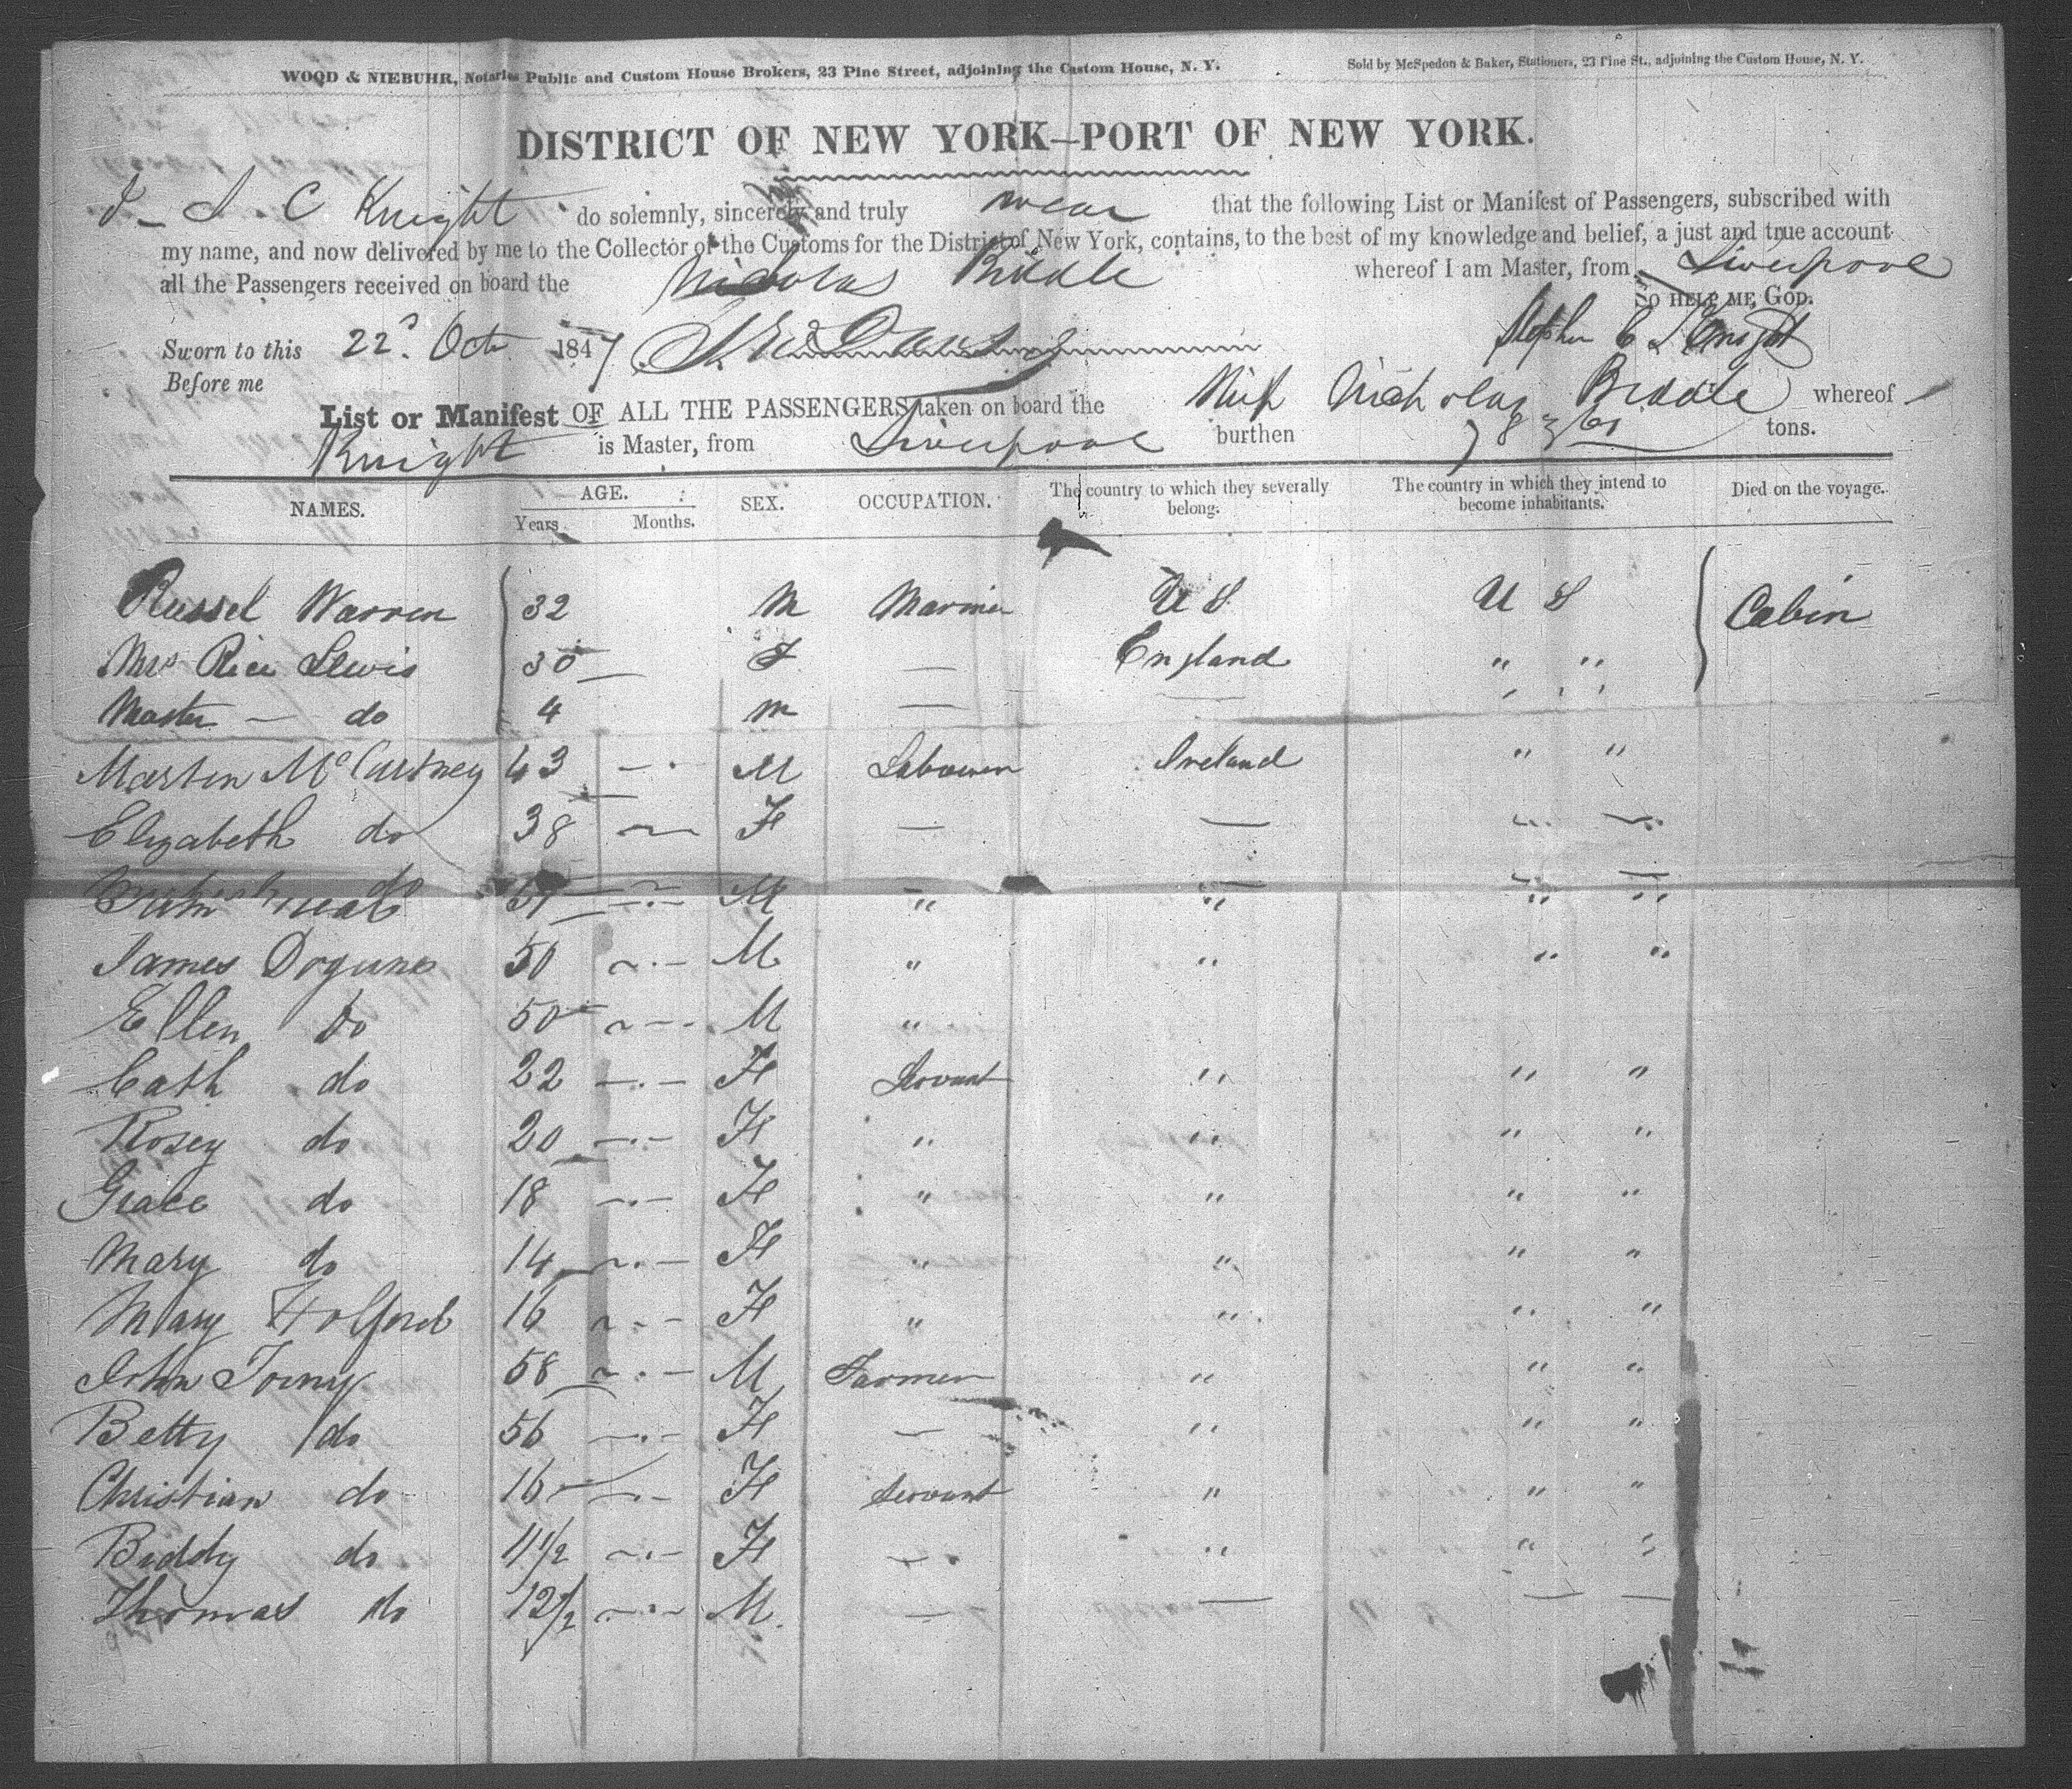 WOOD & NIEBUHR, Notaries Public and Custom House Brokers, 23 Pine Street, adjoining the Custom House, N. Y. Sold by McSpedon & Baker, Stationers, 23 Pine St., adjoining the Custom House, N. Y.
DISTRICT OF NEW YORK—PORT OF NEW YORK.
I — S. C Knight do solemnly, sincerely and truly swear that the following List or Manifest of Passengers, subscribed with
my name, and now delivered by me to the Collector of the Customs for the District of New York, contains, to the best of my knowledge and belief, a just and true account
all the Passengers received on board the Nicholas Biddle whereof I am Master, from Liverpool
SO HELP ME, GOD.
Sworn to this 22d. Oct 1847 Stephen C Knight
Before me
List or Manifest OF ALL THE PASSENGERS taken on board the Ship Nicholas Biddle whereof
Knight is Master, from Liverpool burthen tons.
NAMES. AGE. SEX. OCCUPATION. The country to which they severally belong. The country in which they intend to become inhabitants. Died on the voyage.
Years Months.
Russel Warren 32 M Mariner U S U S Cabin
Mrs Rice Lewis 30 — F — England " "
Master — do 4 M — — " "
Martin McCartney 43 — M Labourer Ireland " "
Elizabeth do 38 — F — — " "
do M " " " "
James 50 — M " " " "
Ellen do 50 — M "
Cath do 22 — F Servant " " "
Rosey do 20 — F " " " "
Grace do 18 — F " " " "
Mary do 14 — F " " " "
Mary Holford 16 — F " " " "
John Torny 58 — M Farmer " " "
Betty do 56 — F — " " "
Christian do 16 — F Servant " " "
Biddy do 11 1/2 — F — " " "
Thomas do 12 1/2 — M — — — —